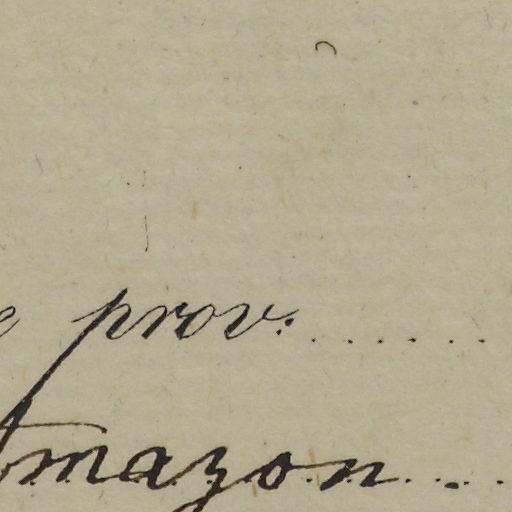 e prov. . . . . . .
Amazon . . . .